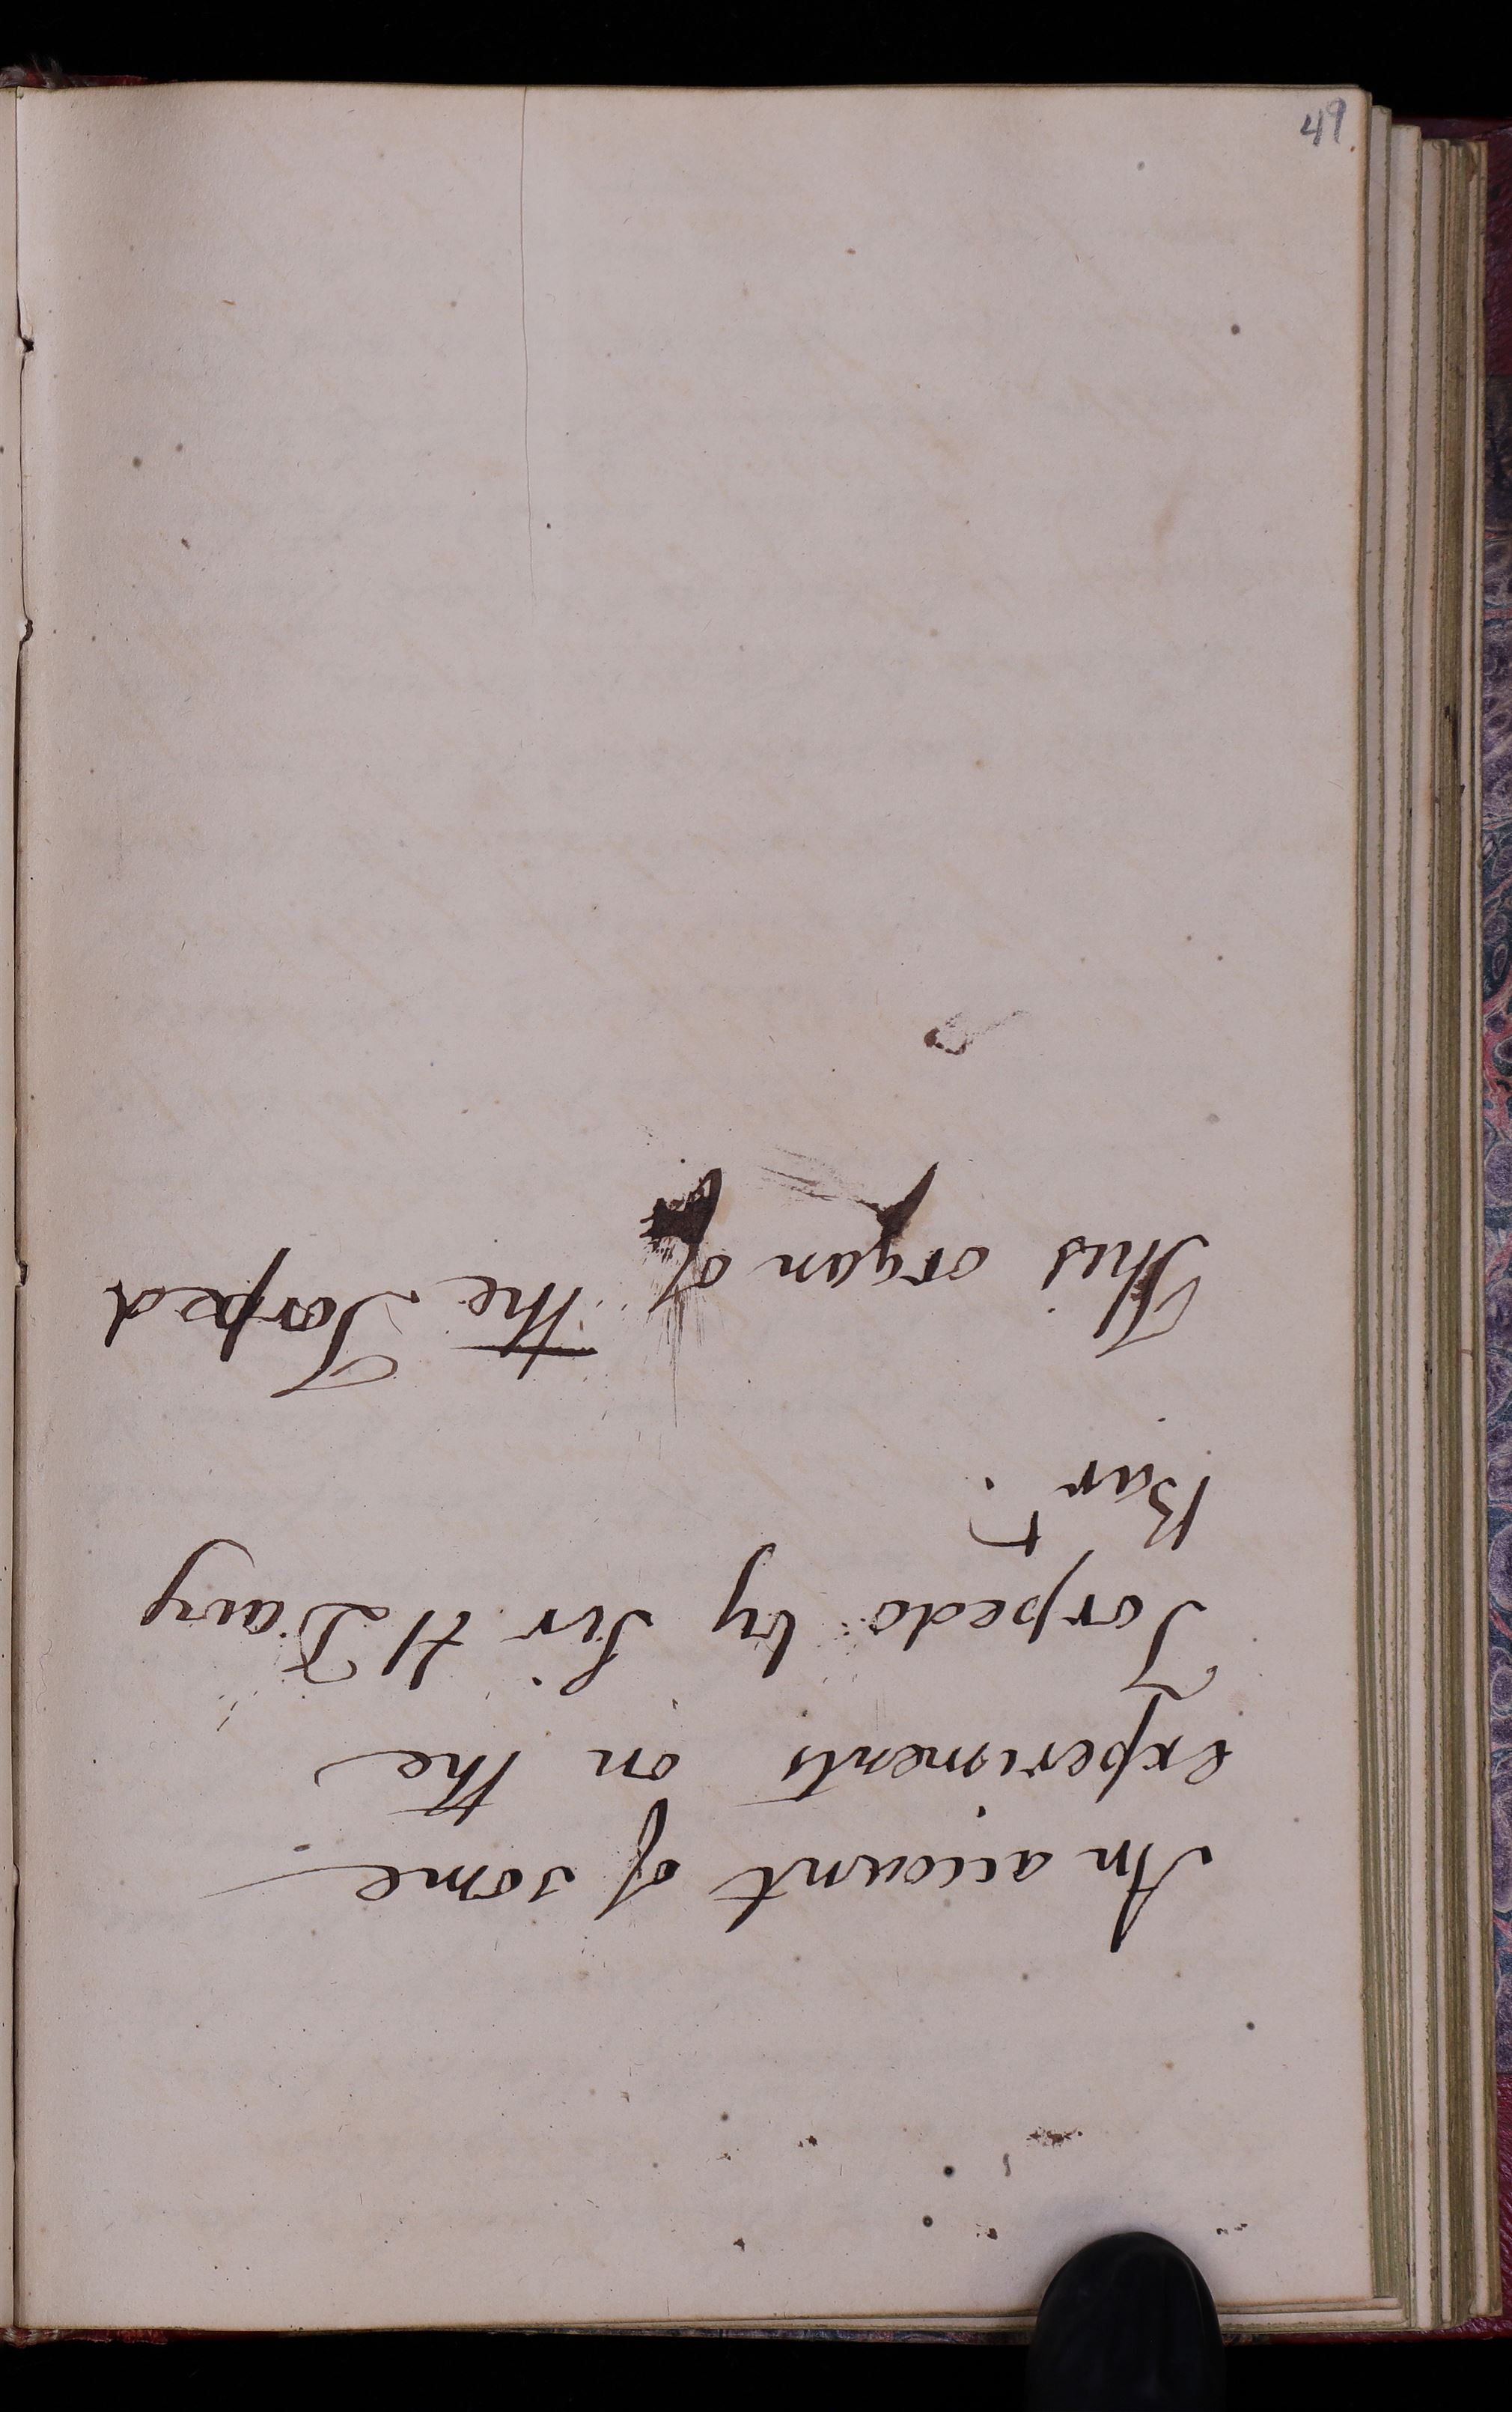 49.
An account of some
experiments on the
Torpedo by Sir H Davy
Bart.
This organ of the Torped